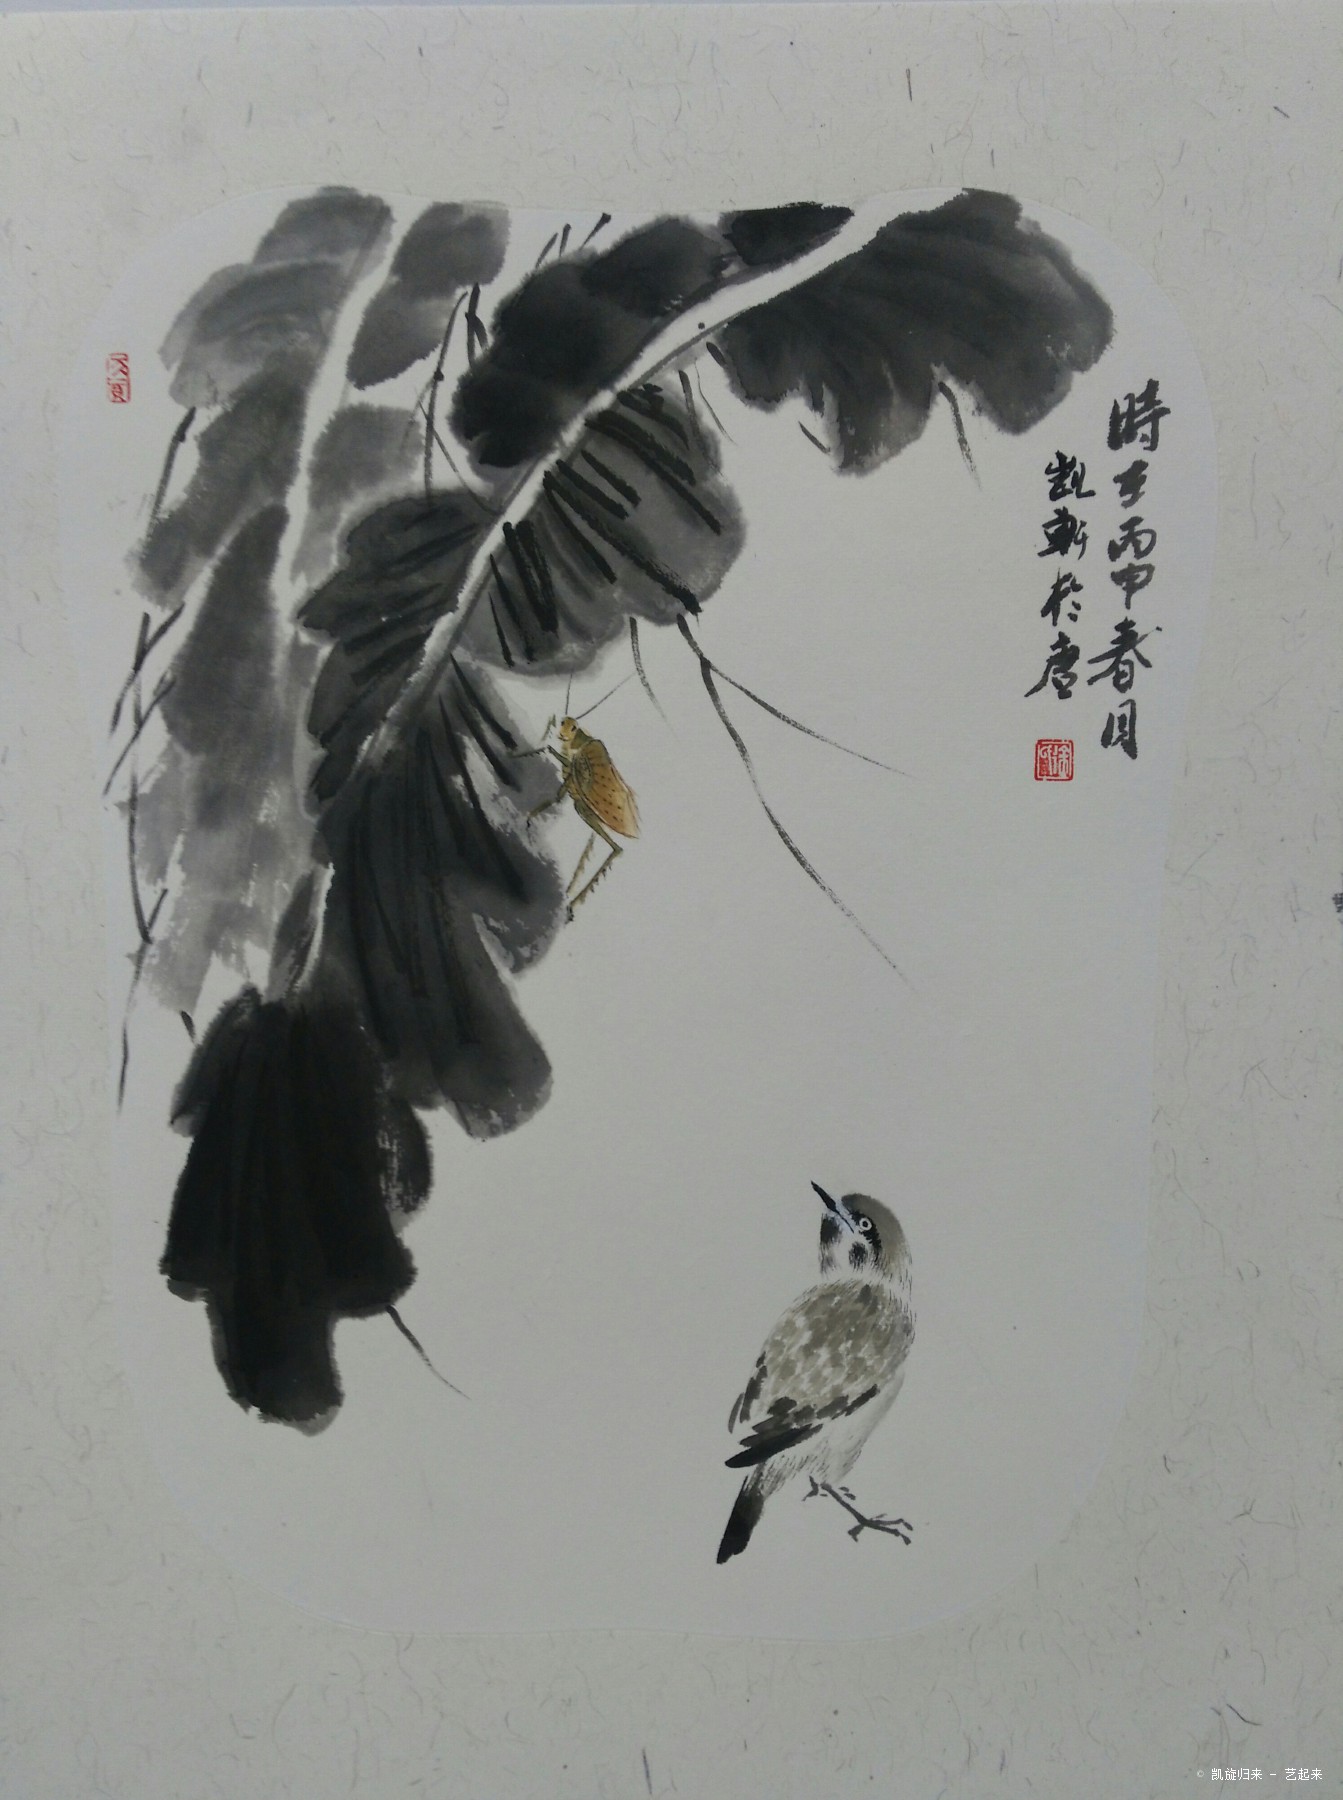 時在丙申春月
凯轩於唐
© 凯旋归来 - 艺起来